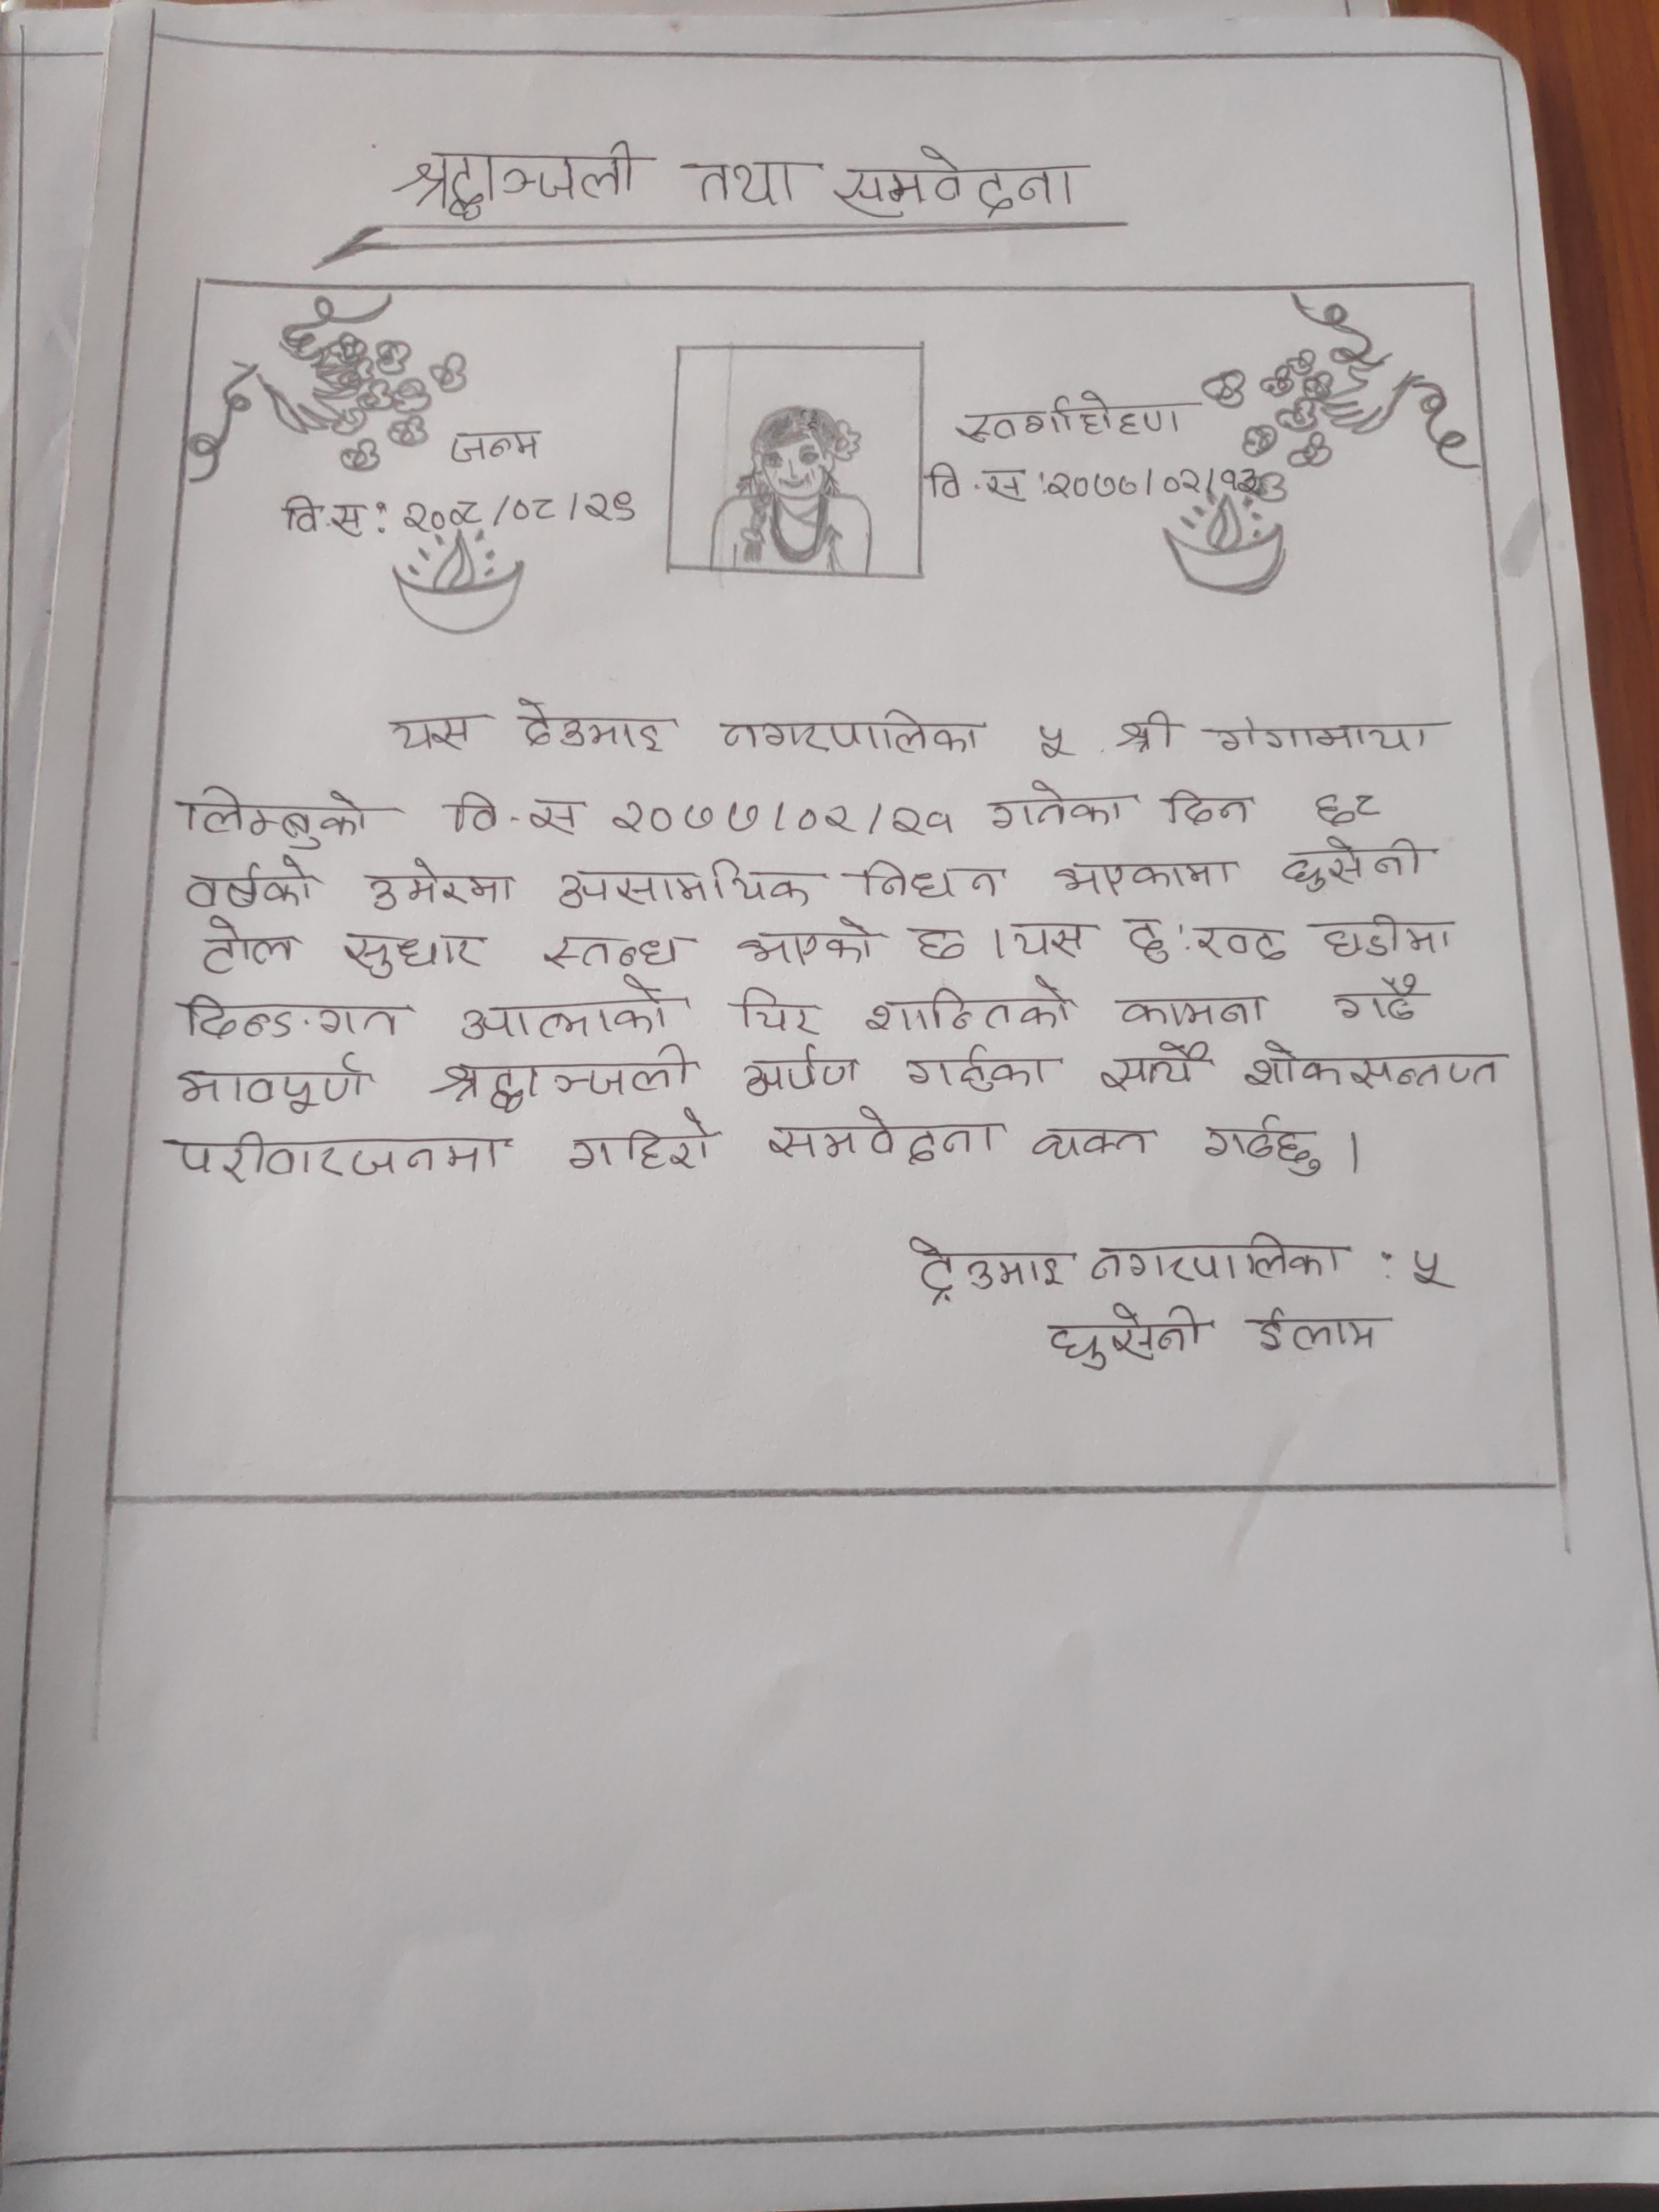 श्रद्धाञ्जली तथा समवेदना
जन्म
वि.स: २००८/०८/२९
स्वर्गारोहण
वि.स: २०७७/०२/१३
यस देउमाइ नगरपालिका ५ श्री गंगामाया
लिम्बुको वि.स २०७७/०२/२१ गतेका दिन ६८
वर्षको उमेरमा असामयिक निधन भएकामा घुसेनी
टोल सुधार स्तब्ध भएको छ । यस दु:खद घडीमा
दिवङगत आत्माको चिर शान्तिको कामना गर्दै
भावपूर्ण श्रद्धाञ्जली अर्पण गर्दुका साथै शोकसन्तप्त
परीवारजनमा गहिरो समवेदना व्यक्त गर्दछु ।
देउमाइ नगरपालिका : ५
घुसेनी ईलाम